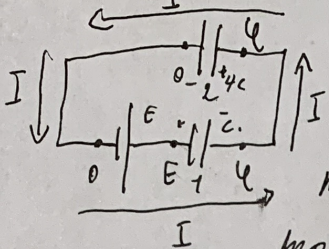 I
φ
0 - 2 + 4C
I
I
E + - C.
0 E 1 φ
I